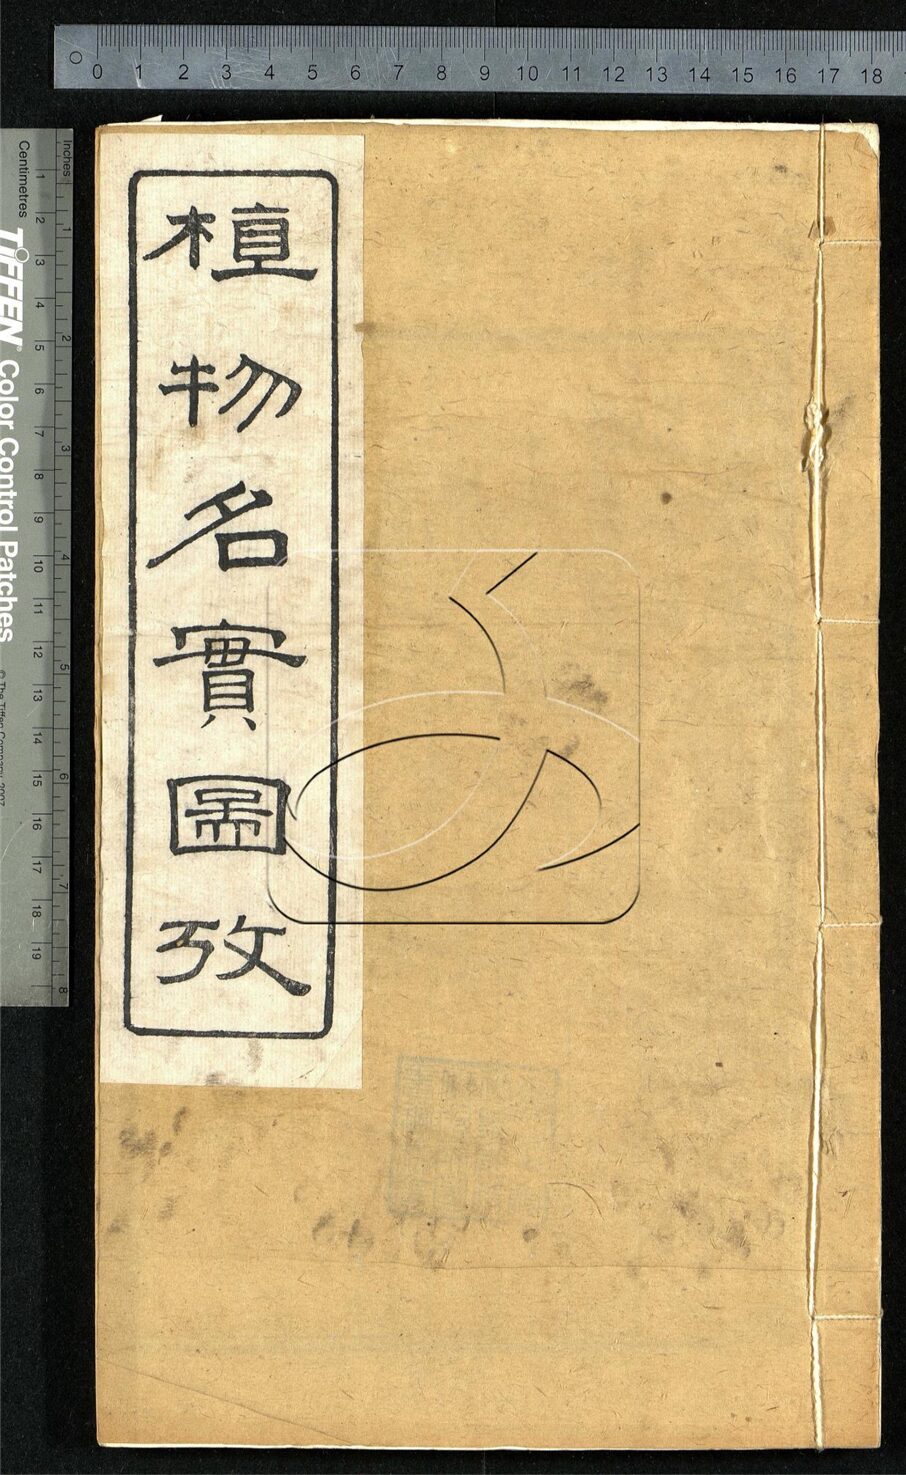 植物名實圖攷
0 1 2 3 4 5 6 7 8 9 10 11 12 13 14 15 16 17 18
Inches 1 2 3 4 5 6 7 8
Centimetres 1 2 3 4 5 6 7 8 9 10 11 12 13 14 15 16 17 18 19
TIFFEN® Color Control Patches
© The Tiffen Company, 2007